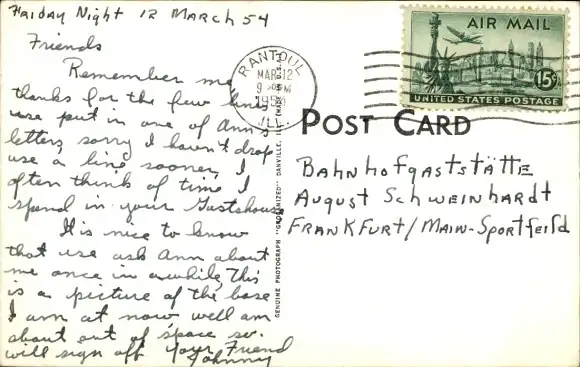 Friday Night 12 March 54
Friends
Remember me,
thanks for the few lines
use put in one of Ann's
letters, sorry I havn't drop
use a line sooner, I
often think of time I
spend in your Gastshouse
It is nice to know
that use ask Ann about
me once in awhile, This
is a picture of the base
I am at now well am
about out of space so.
will sign off your Friend
Johnny
RANTOUL
MAR 12
9 PM
1954
ILL.
AIR MAIL
15¢
UNITED STATES POSTAGE
POST CARD
Bahnhofgaststätte
August Schweinhardt
Frankfurt/Main-Sportfeild
GENUINE PHOTOGRAPH "GROGANIZED" DANVILLE, ILL.